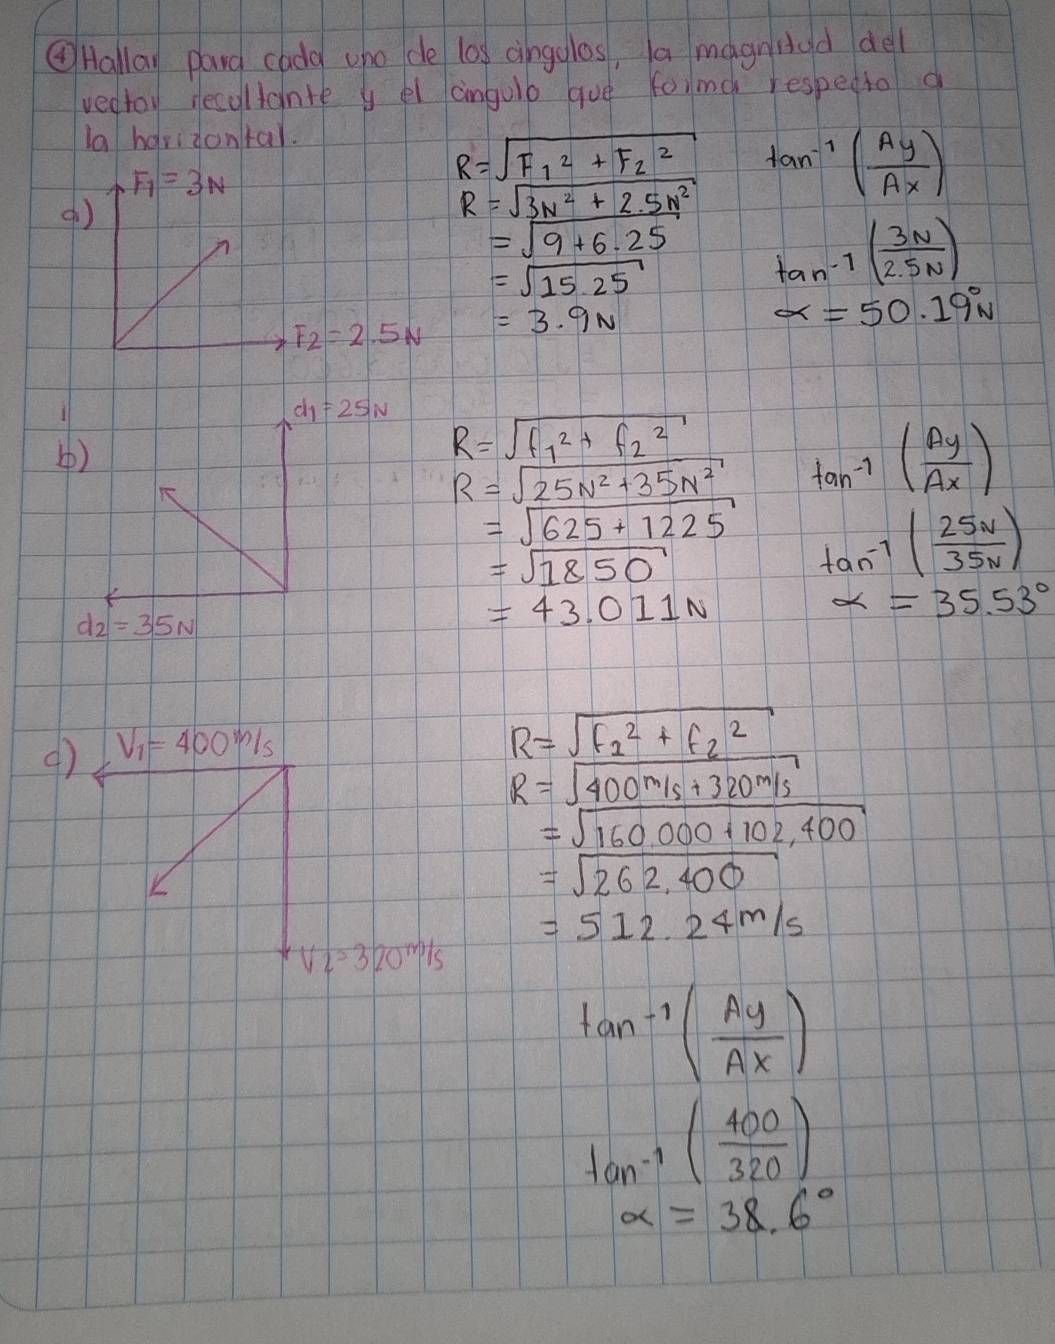 ④ Hallar para cada uno de los ángulos, la magnitud del
vector recultante y el ángulo que forma respecto a
la horizontal.
a)
F₁ = 3N
F2 = 2.5N
R = √F₁² + F₂²
R = √3N² + 2.5N²
= √9 + 6.25
= √15.25
= 3.9N
tan⁻¹ (Ay/Ax)
tan⁻¹ (3N/2.5N)
∝ = 50.19°N
b)
d₁ = 25N
d2 = 35N
R = √f₁² + f₂²
R = √25N² + 35N²
= √625 + 1225
= √1850
= 43.011N
tan⁻¹ (Ay/Ax)
tan⁻¹ (25N/35N)
∝ = 35.53°
c)
V₁ = 400m/s
V2 = 320m/s
R = √f₂² + f₂²
R = √400m/s + 320m/s
= √160.000 + 102,400
= √262,400
= 512.24m/s
tan⁻¹ (Ay/Ax)
tan⁻¹ (400/320)
∝ = 38.6°